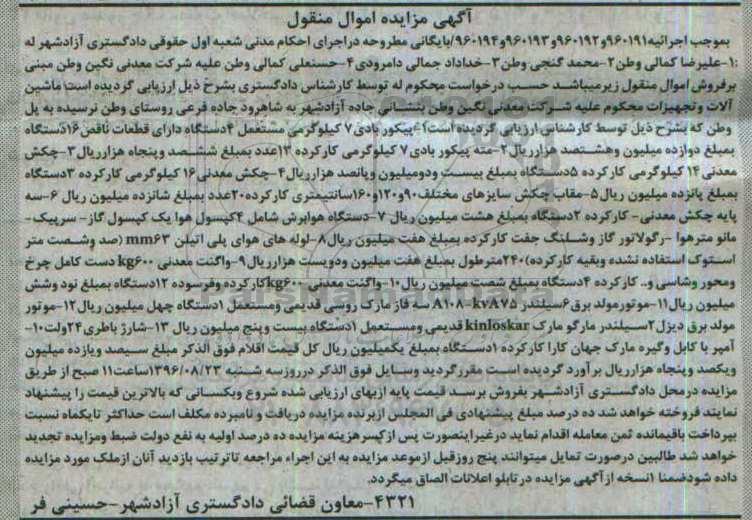 آگهی مزایده اموال منقول
بموجب اجرائیه۹۶۰۱۹۱و۹۶۰۱۹۲و۹۶۰۱۹۳و۹۶۰۱۹۴/بایگانی مطروحه دراجرای احکام مدنی شعبه اول حقوقی دادگستری آزادشهر له
:۱-علیرضا کمالی وطن۲-محمد گنجی وطن۳-خداداد جمالی دامرودی۴-حسنعلی کمالی وطن علیه شرکت معدنی نگین وطن مبنی
برفروش اموال منقول زیرمیباشد حسب درخواست محکوم له توسط کارشناس دادگستری بشرح ذیل ارزیابی گردیده است ماشین
آلات وتجهیزات محکوم علیه شرکت معدنی نگین وطن بنشانی جاده آزادشهر به شاهرود جاده فرعی روستای وطن نرسیده به پل
وطن که بشرح ذیل توسط کارشناس ارزیابی گردیده است۱-پیکور بادی۷ کیلوگرمی مستعمل ۴دستگاه دارای قطعات ناقص۱۶دستگاه
بمبلغ دوازده میلیون وهشتصد هزارریال۲-مته پیکور بادی۷ کیلوگرمی کارکرده ۱۳عدد بمبلغ ششصد وپنجاه هزارریال۳-چکش
معدنی۱۴ کیلوگرمی کارکرده ۵دستگاه بمبلغ بیست ودومیلیون وپانصد هزارریال۴-چکش معدنی۱۶ کیلوگرمی کارکرده ۳دستگاه
بمبلغ پانزده میلیون ریال۵-مقاب چکش سایزهای مختلف۹۰و۱۲۰و۱۶۰سانتیمتری کارکرده۲۰عدد بمبلغ شانزده میلیون ریال ۶-سه
پایه چکش معدنی- کارکرده ۲دستگاه بمبلغ هشت میلیون ریال ۷-دستگاه هوابرش شامل ۴کپسول هوا یک کپسول گاز- سرپیک-
مانو مترهوا -رگولاتور گاز وشلنگ جفت کارکرده بمبلغ هفت میلیون ریال۸-لوله های هوای پلی اتیلن mm۶۳ (صد وشصت متر
استوک استفاده نشده وبقیه کارکرده)۲۴۰مترطول بمبلغ هفت میلیون ودویست هزارریال۹-واگنت معدنی kg۶۰۰ دست کامل چرخ
ومحور وشاسی و.. کارکرده ۴دستگاه بمبلغ شصت میلیون ریال۱۰-واگنت معدنی kg۶۰۰کارکرده وفرسوده ۱۲دستگاه بمبلغ نود وشش
میلیون ریال۱۱-موتورمولد برق۶سیلندر kv۸۷۵-۸۱۰۸ سه فاز مارک روسی قدیمی ومستعمل ۱دستگاه چهل میلیون ریال۱۲-موتور
مولد برق دیزل۲سیلندر مارگو مارک kinloskar قدیمی ومستعمل ۱دستگاه بیست وپنج میلیون ریال ۱۳-شارژ باطری۲۴ولت-۱۰
آمپر با کابل وگیره مارک جهان کارا کارکرده ۱دستگاه بمبلغ یکمیلیون ریال کل قیمت اقلام فوق الذکر مبلغ سیصد ویازده میلیون
ویکصد وپنجاه هزارریال برآورد گردیده است مقررگردید وسایل فوق الذکر درروزسه شنبه ۱۳۹۶/۰۸/۲۳ساعت۱۱ صبح از طریق
مزایده درمحل دادگستری آزادشهر بفروش برسد قیمت پایه ازبهای ارزیابی شده شروع وبکسانی که بالاترین قیمت را پیشنهاد
نمایند فروخته خواهد شد ده درصد مبلغ پیشنهادی فی المجلس ازبرنده مزایده دریافت و نامبرده مکلف است حداکثر تایکماه نسبت
بپرداخت باقیمانده ثمن معامله اقدام نماید درغیراینصورت پس ازکسرهزینه مزایده ده درصد اولیه به نفع دولت ضبط ومزایده تجدید
خواهد شد طالبین درصورت تمایل میتوانند پنج روزقبل ازموعد مزایده به این اجراء مراجعه تاترتیب بازدید آنان ازملک مورد مزایده
داده شودضمنا ۱نسخه ازآگهی مزایده درتابلو اعلانات الصاق میگردد.
۴۳۲۱-معاون قضائی دادگستری آزادشهر-حسینی فر